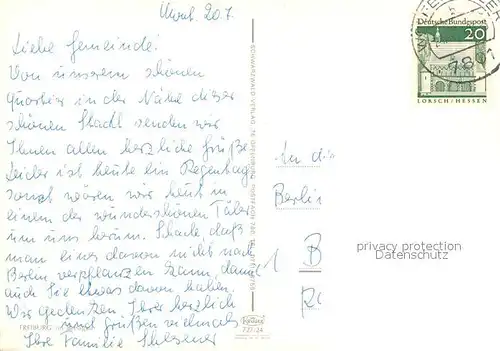 20.7.
Liebe Gemeinde!
Von unserem schönen
Quartier in der Nähe dieser
schönen Stadt senden wir
Ihnen allen herzliche Grüße.
Leider ist heute ein Regentag
sonst wären wir heut in
einem der wunderschönen Täler
um uns herum. Schade daß
man eines davon nicht nach
Berlin verpflanzen kann, damit
auch Sie etwas davon haben.
Wir gedenken Ihrer herzlich
und grüßen vielmals
Ihre Familie
FREIBURG
727/24
Deutsche Bundespost
20
LORSCH/HESSEN
In di
Berli
1 B
privacy protection
Datenschutz